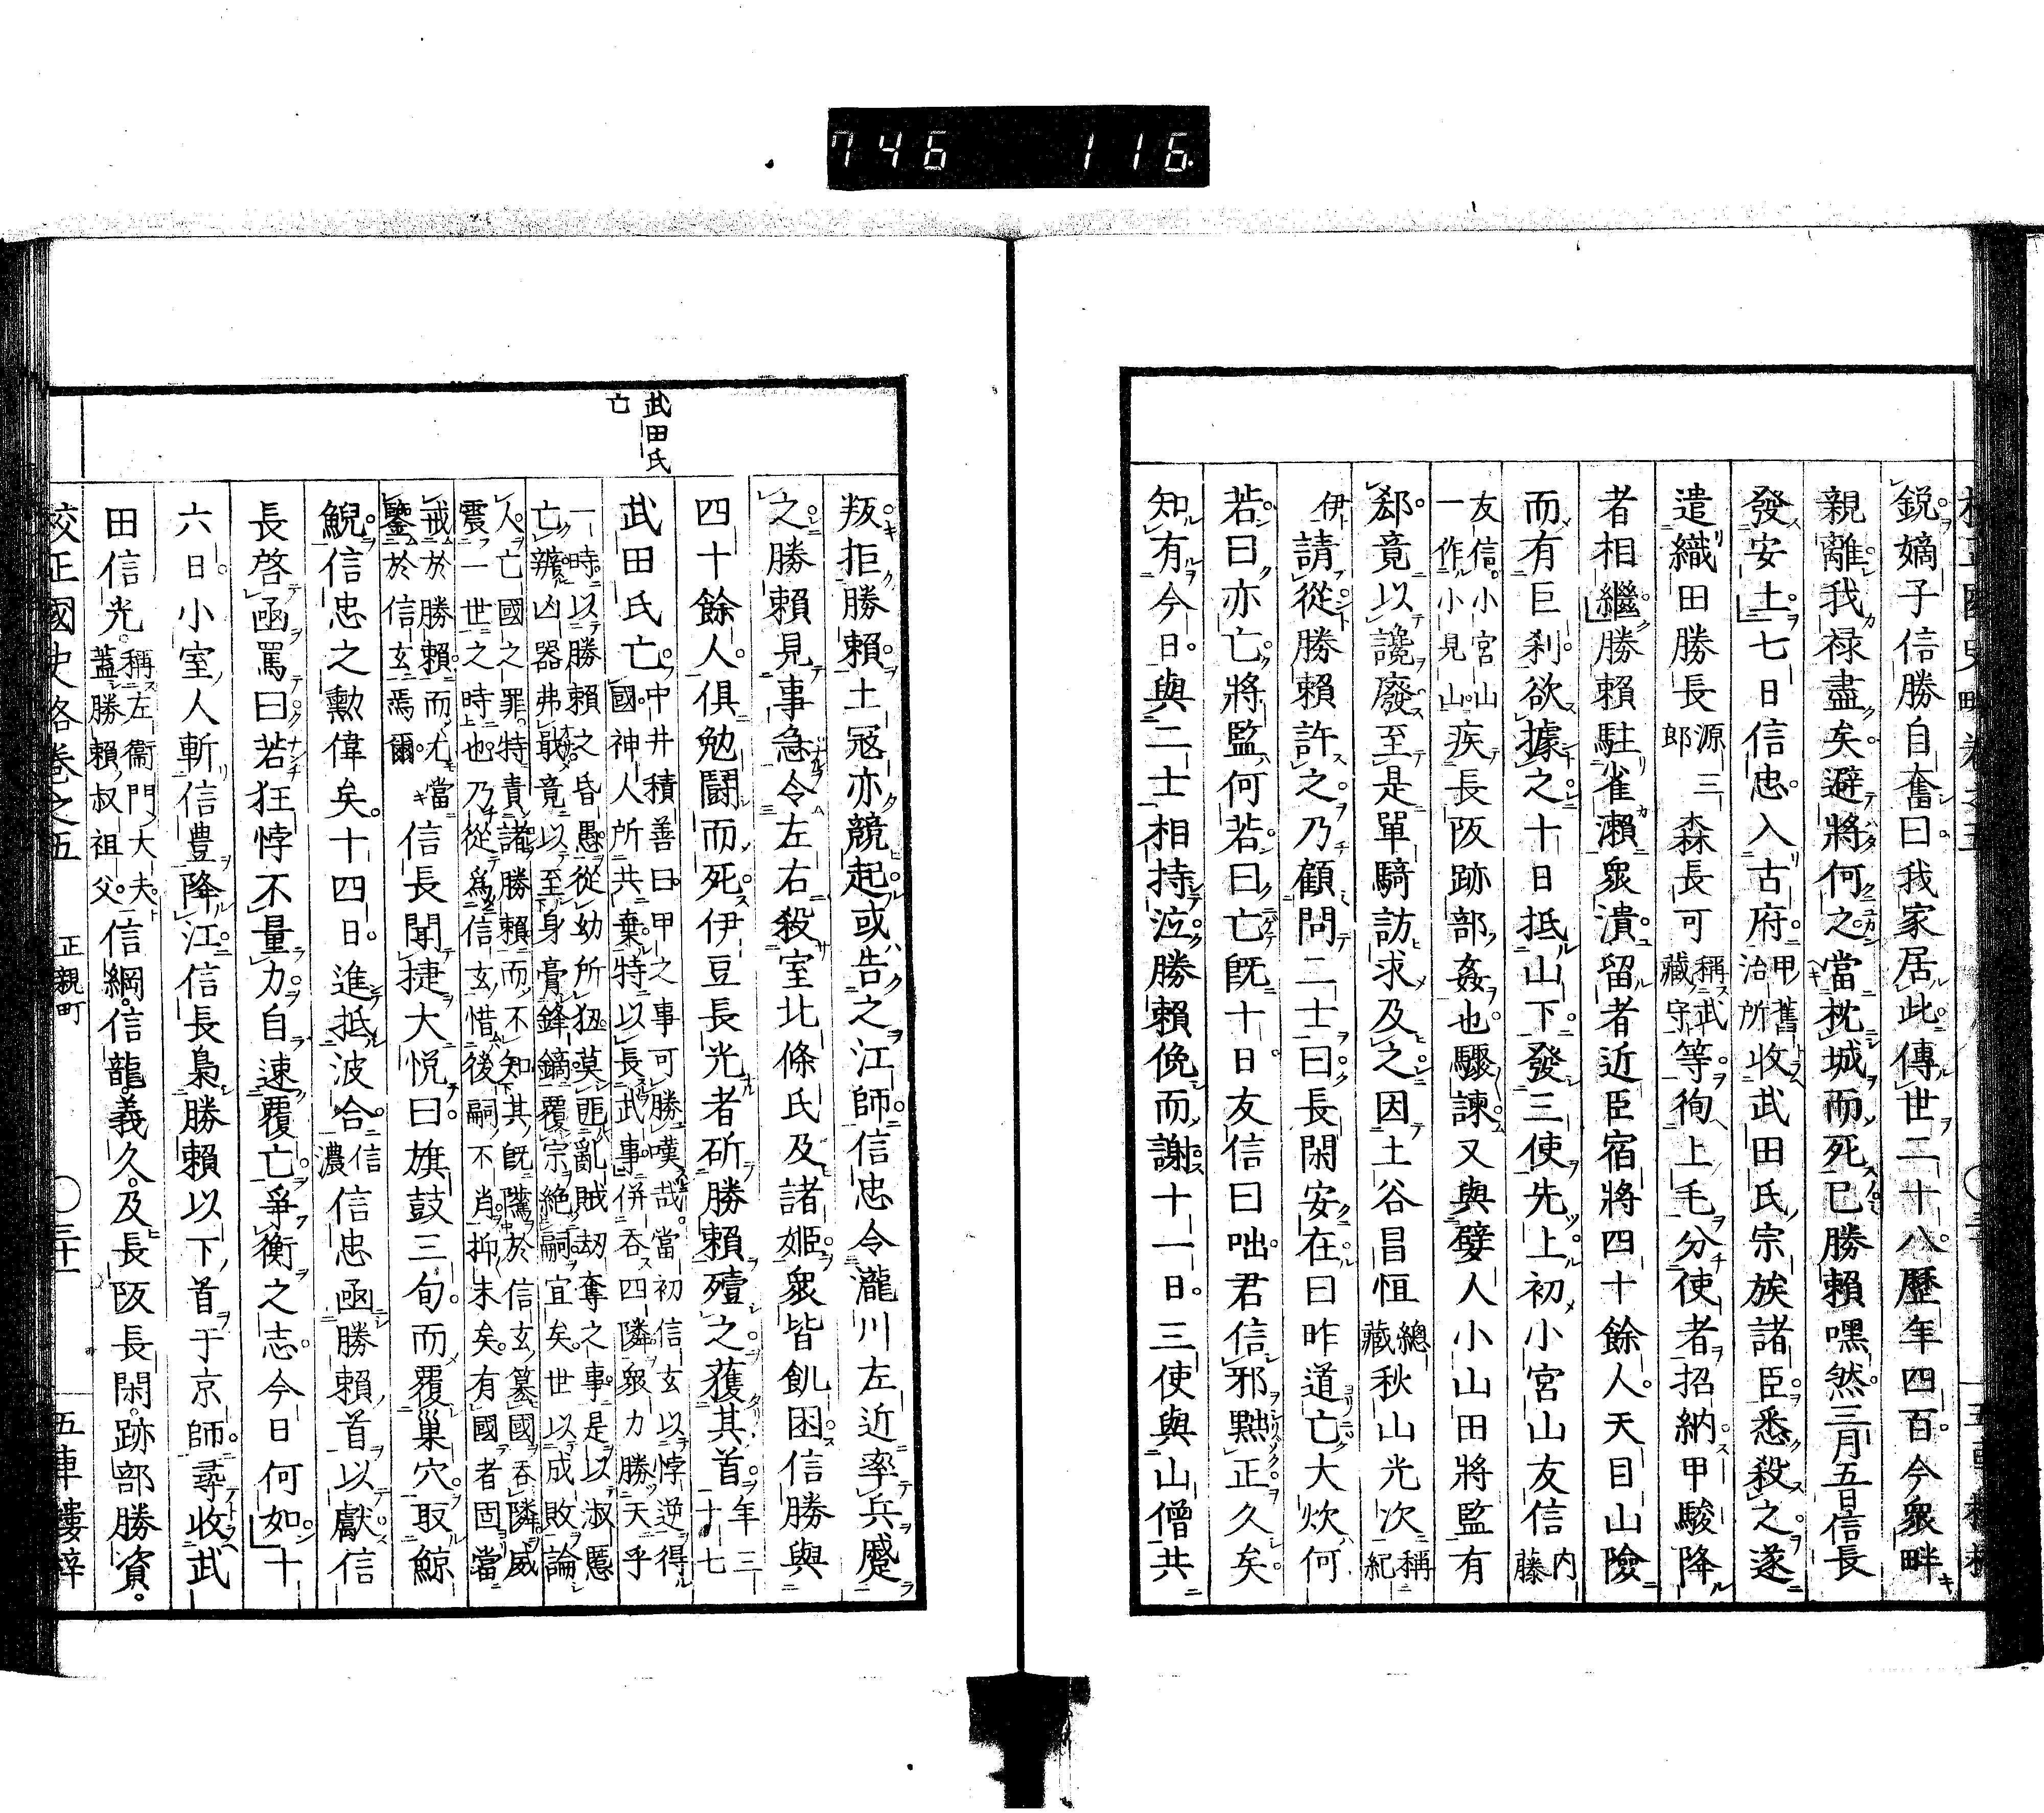 746 116
鋭嫡子信勝自奮曰我家居此傳世二十八歷年四百今衆畔
親離我祿盡矣避將何之當枕城而死已勝賴嘿然三月五日信長
發安土七日信忠入古府甲舊治所收武田氏宗族諸臣悉殺之遂
遣織田勝長源三郎森長可稱武藏守等徇上毛分使者招納甲駿降
者相繼勝賴駐雀瀨衆潰留者近臣宿將四十餘人天目山險
而有巨刹欲據之十日抵山下發三使先上初小宮山友信內藤
友信小宮山一作小見山疾長阪跡部姦也驟諫又與嬖人小山田將監有
郄竟以讒廢至是單騎訪求及之因土谷昌恒總藏秋山光次稱紀
伊請從勝賴許之乃顧問二士曰長閑安在曰昨道亡大炊何
若曰亦亡將監何若曰亡旣十日友信曰咄君信邪黜正久矣
知有今日與二士相持泣勝賴俛而謝十一日三使與山僧共
叛拒勝賴土寇亦競起或告之江師信忠令瀧川左近率兵蹙
之勝賴見事急令左右殺室北條氏及諸姬衆皆飢困信勝與
四十餘人俱勉鬪而死伊豆長光者斫勝賴殪之獲其首年三十七
武田氏亡
武田氏亡中井積善曰甲之事可勝嘆哉當初信玄以悖逆得國神人所共棄特以長武事併吞四隣衆力勝天乎
一時以勝賴之昏愚從幼所狃莫匪亂賊刼奪之事是以淑慝亡辨凶器弗戢竟以至身膏鋒鏑覆宗絕嗣宜矣世以成敗論
人亡國之罪特責諸勝賴而不知其旣隲於信玄簒國吞隣威震一世之時也乃從爲信玄惜後嗣不肖抑末矣有國者固當
戒於勝賴而尤當鑒於信玄焉爾信長聞捷大悅曰旗鼓三旬而覆巢穴取鯨
鯢信忠之勳偉矣十四日進抵波合信濃信忠函勝賴首以獻信
長啓函罵曰若狂悖不量力自速覆亡爭衡之志今日何如十
六日小室人斬信豊降江信長梟勝賴以下首于京師尋收武
田信光稱左衞門大夫蓋勝賴叔祖父信綱信龍義久及長阪長閑跡部勝資
校正國史略卷之五 正親町 三十一 五車樓梓